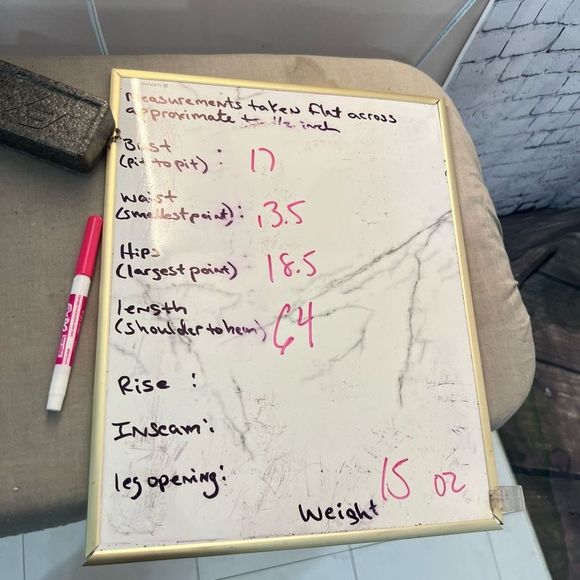 measurements taken flat across
approximate +- 1/2 inch
Bust
(pit to pit) : 17
waist
(smallest point): 13.5
Hips
(largest point) 18.5
length
(shoulder to hem) 64
Rise :
Inseam:
leg opening:
Weight 15 oz
EXPO